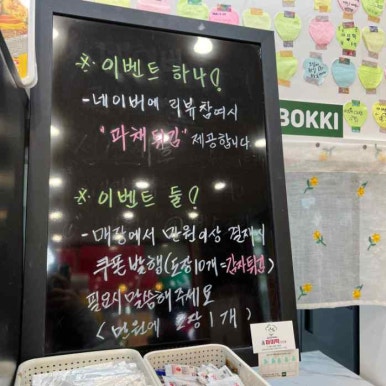 ※ 이벤트 하나!
- 네이버에 리뷰 참여시
"파채튀김" 제공합니다
※ 이벤트 둘!
- 매장에서 만원이상 결제시
쿠폰발행(도장10개=감자튀김)
필요시 말씀해주세요
<만원에 도장 1개>
BOKKI